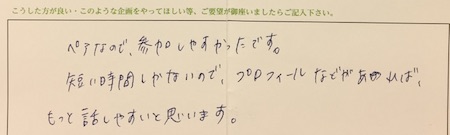 こうした方が良い・このような企画をやってほしい等、ご要望が御座いましたらご記入下さい。
ペアなので、参加しやすかったです。
短い時間しかないので、プロフィールなどがあれば、
もっと話しやすいと思います。